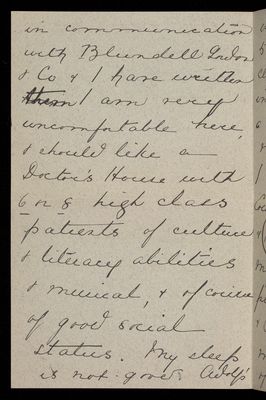 in communication
with Blundell Gordon
& Co & I have written
them I am very
uncomfortable here
& should like a
Doctor's House with
6 or 8 high class
patients of culture
& literary abilities
& musical, & of course
of good social
status. My sleep
is not good.